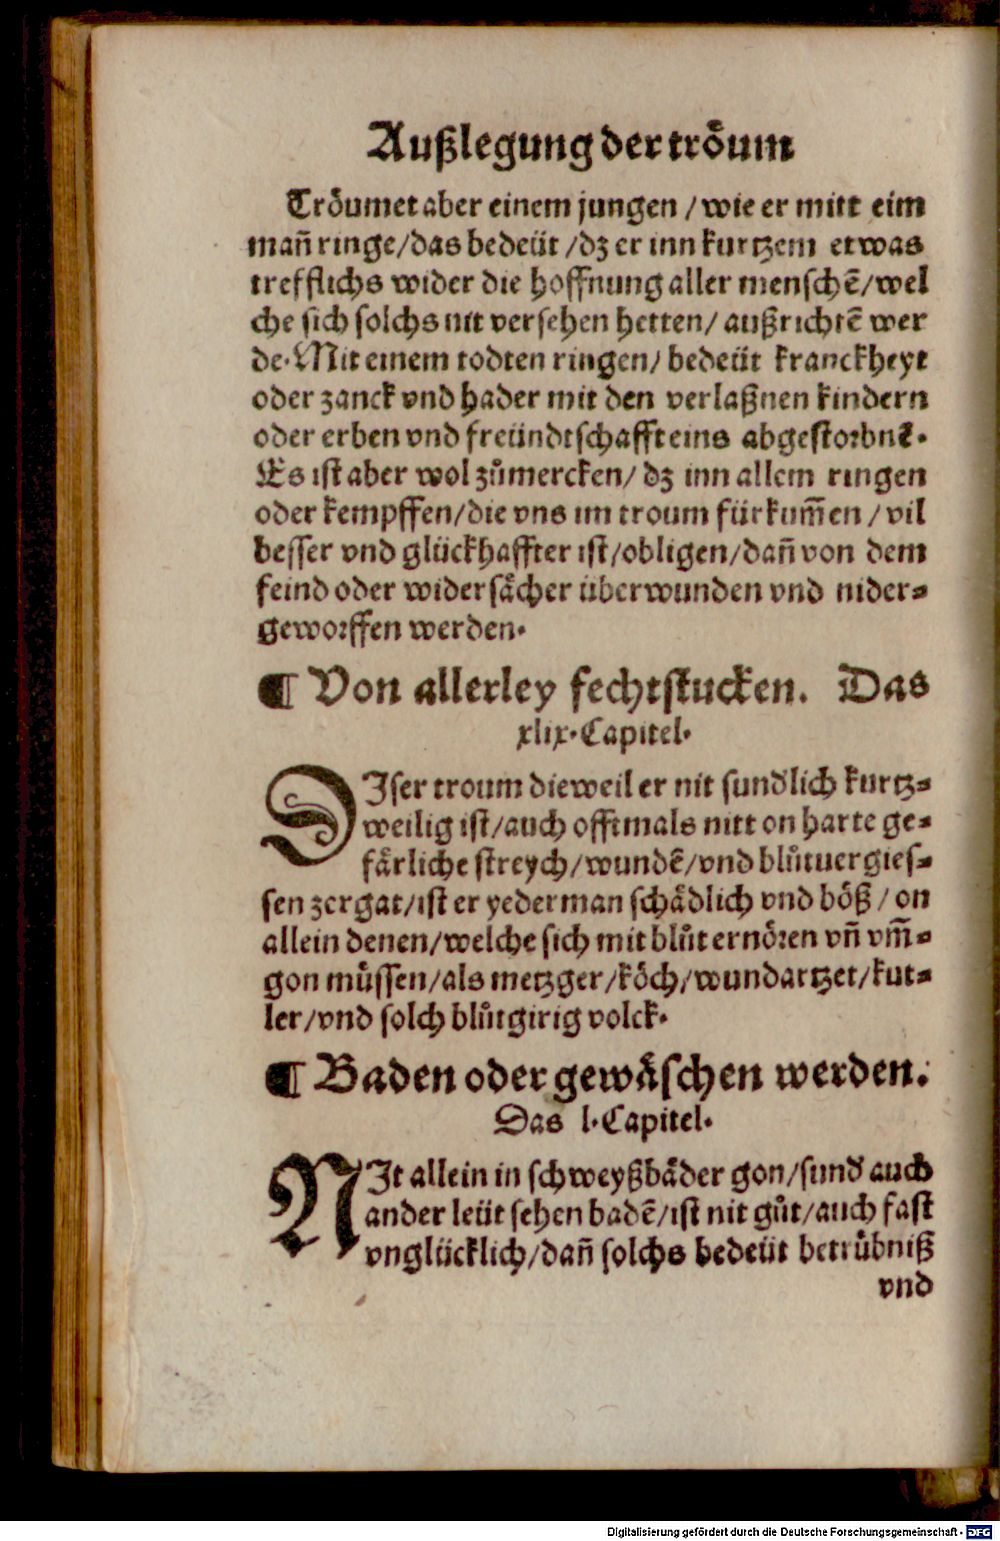 Außlegung der tröum
Tröumet aber einem jungen / wie er mitt eim
mañ ringe / das bedeüt / dz er inn kurtzem etwas
trefflichs wider die hoffnung aller menschẽ / wel
che sich solchs nit versehen hetten / außrichtẽ wer
de. Mit einem todten ringen / bedeüt kranckheyt
oder zanck vnd hader mit den verlaßnen kindern
oder erben vnd freündtschafft eins abgestorbnẽ.
Es ist aber wol zůmercken / dz inn allem ringen
oder kempffen / die vns im troum fürkum̃en / vil
besser vnd glückhaffter ist / obligen / dañ von dem
feind oder widersächer überwunden vnd nider-
geworffen werden.
¶ Von allerley fechtstucken. Das
xlix. Capitel.
DIser troum dieweil er nit sundlich kurtz-
weilig ist / auch offtmals nitt on harte ge-
färliche streych / wundẽ / vnd blůtuergies-
sen zergat / ist er yederman schädlich vnd böß / on
allein denen / welche sich mit blůt ernören vñ vm̃-
gon müssen / als metzger / köch / wundartzet / kut-
ler / vnd solch blůtgirig volck.
¶ Baden oder gewäschen werden.
Das l. Capitel.
NIt allein in schweyßbäder gon / sund' auch
ander leüt sehen badẽ / ist nit gůt / auch fast
vnglücklich / dañ solchs bedeüt betrübniß
vnd
Digitalisierung gefördert durch die Deutsche Forschungsgemeinschaft - DFG